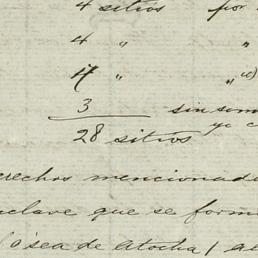 4 sitios por
4 " "
4 " "
3 sin som
28 sitios ya c
erechos mencionado
clave que se form
/ ó sea de Atocha /